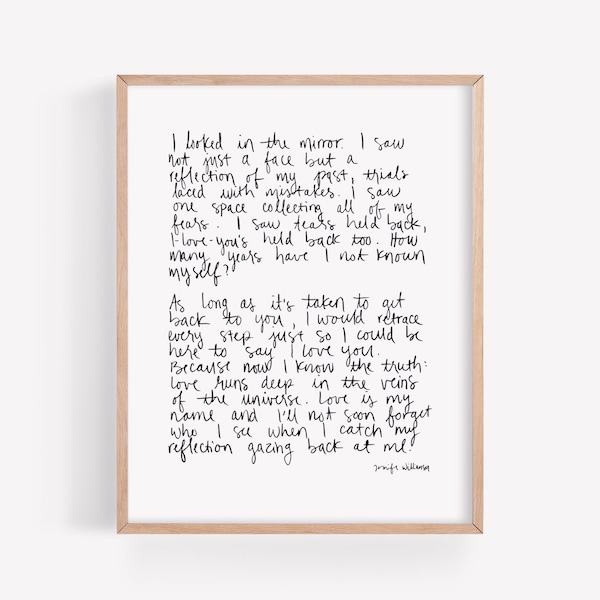 I looked in the mirror. I saw
not just a face but a
reflection of my past, trials
laced with mistakes. I saw
one space collecting all of my
fears. I saw tears held back,
I-love-you's held back too. How
many years have I not known
myself?
As long as it's taken to get
back to you, I would retrace
every step just so I could be
here to say I love you.
Because now I know the truth:
love runs deep in the veins
of the universe. Love is my
name and I'll not soon forget
who I see when I catch my
reflection gazing back at me.
Jennifer Williamson